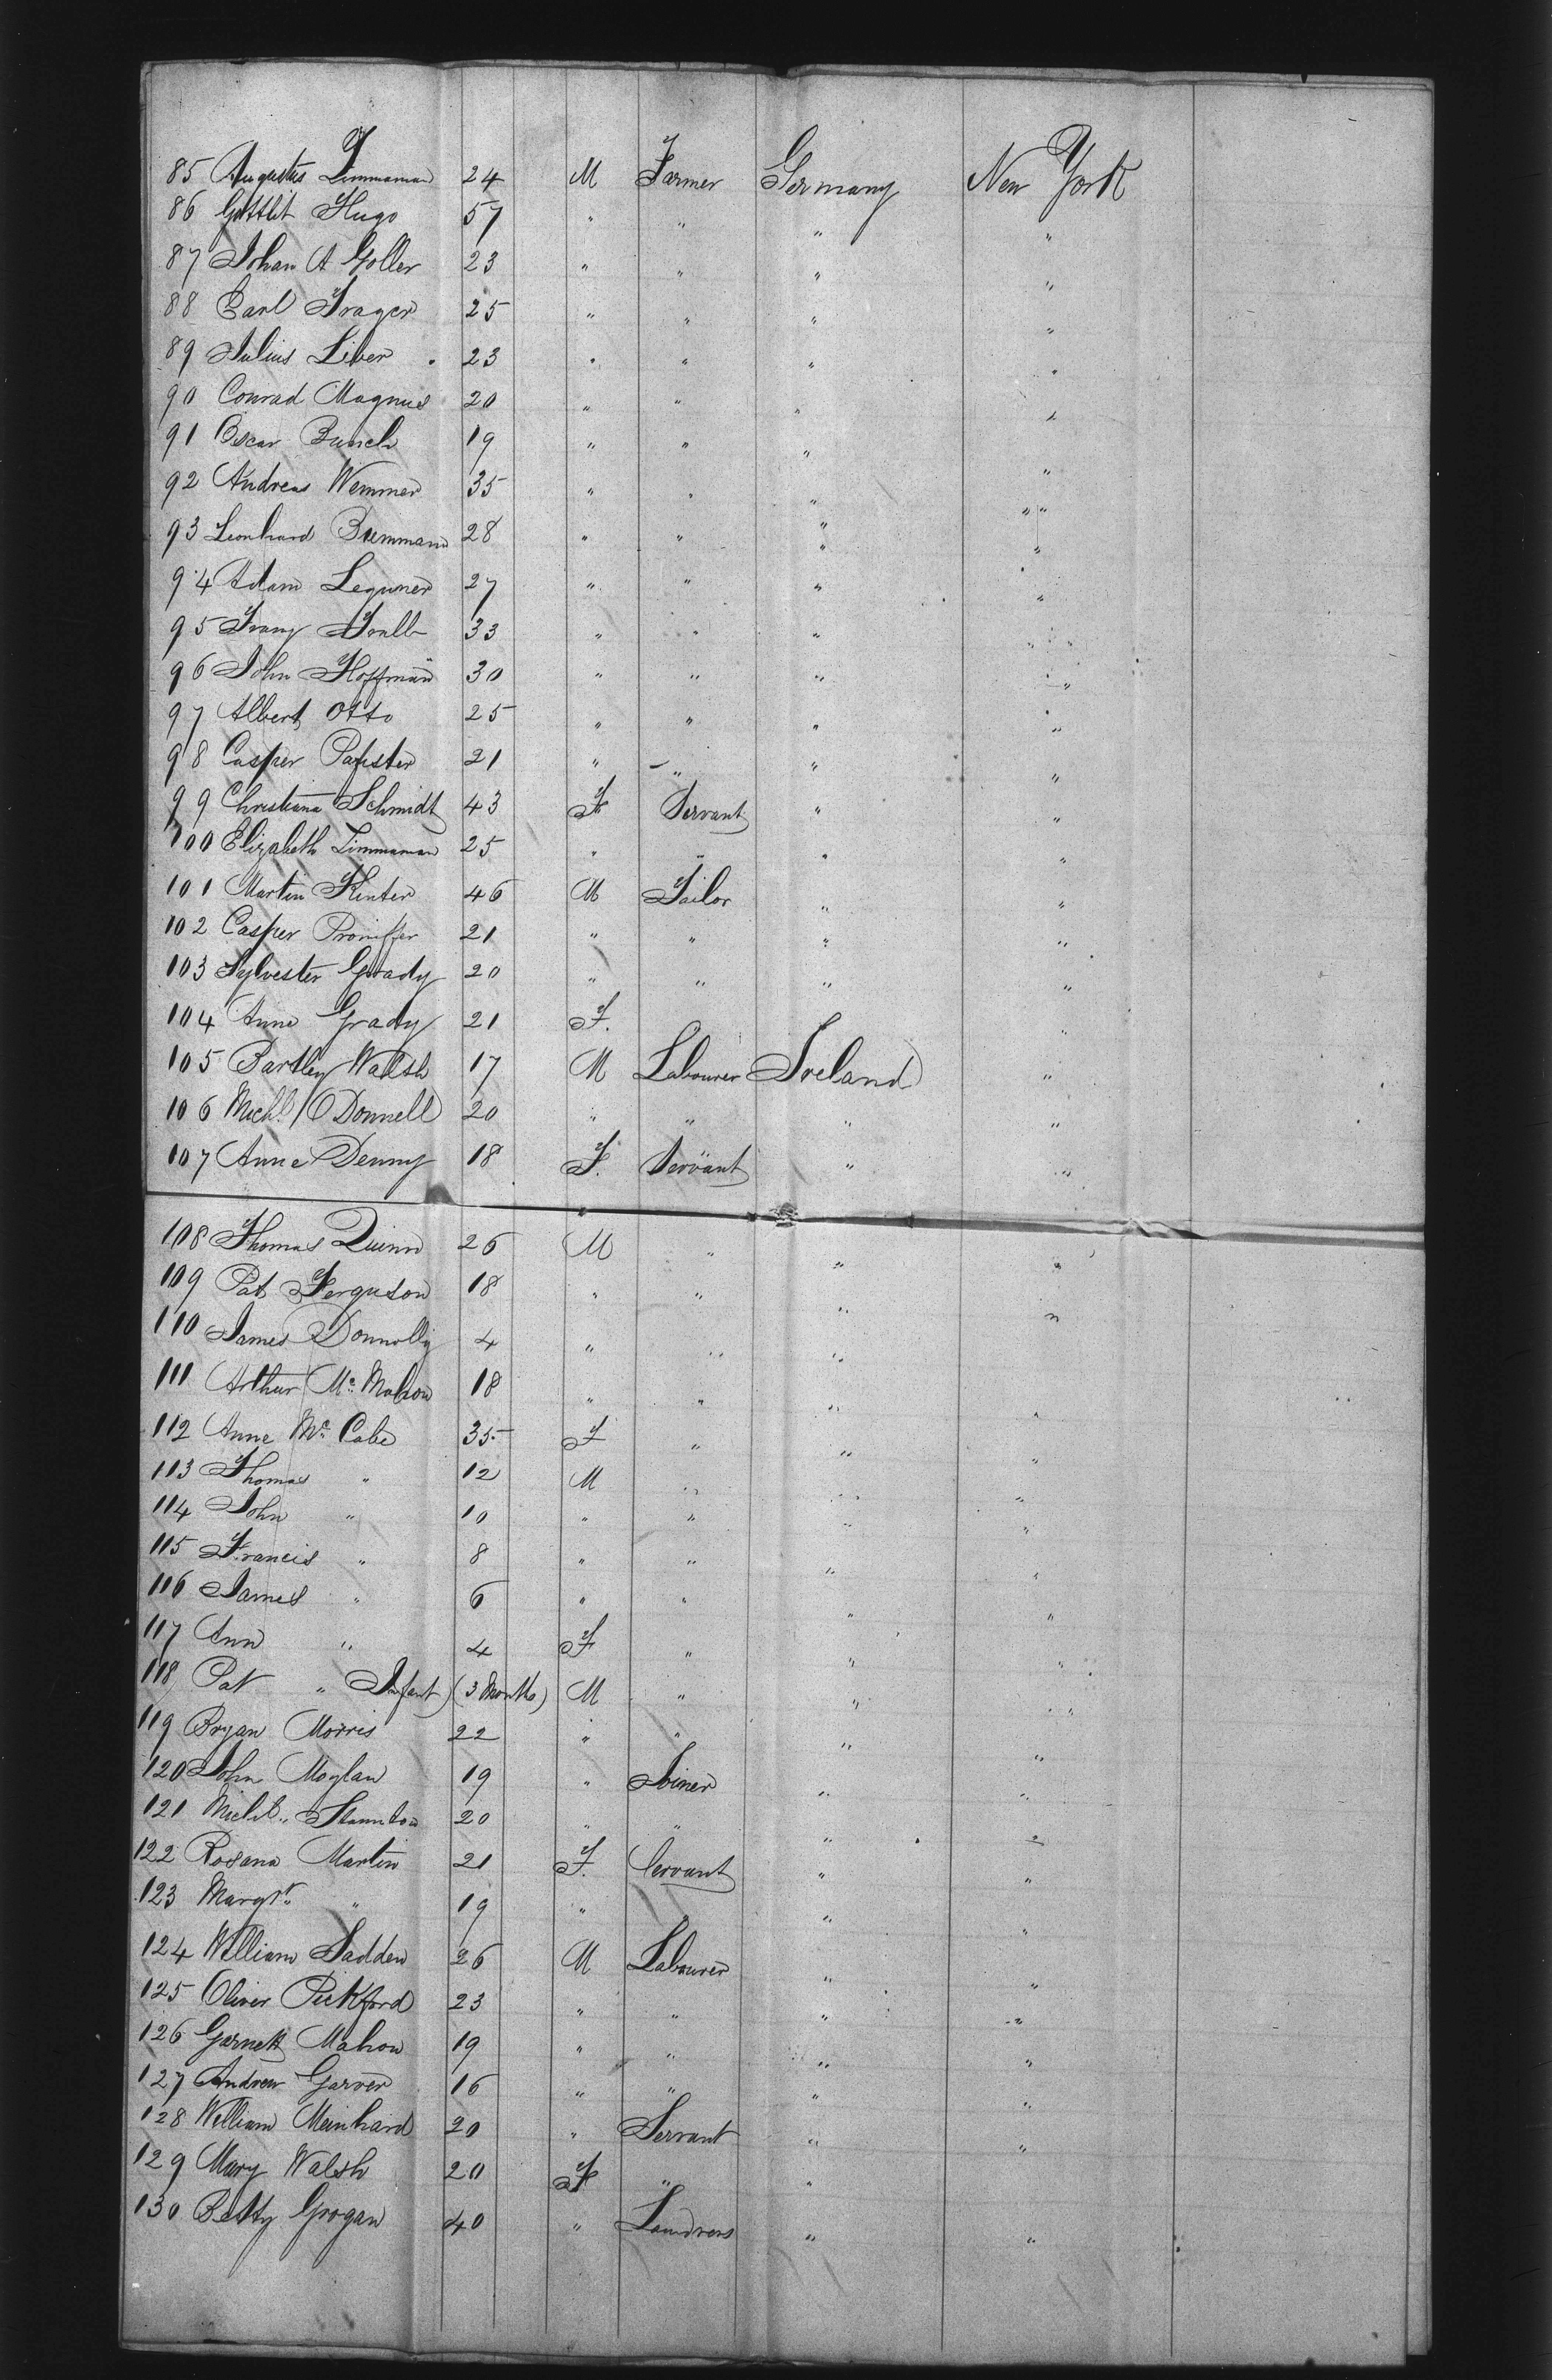 85 Augustus Zimmaman 24 M Farmer Germany New York
86 Gottlit Hugo 57 " " " "
87 Johan A Goller 23 " " " "
88 Carl Trager 25 " " " "
89 Julius Liber 23 " " " "
90 Conrad Magnus 20 " " " "
91 Oscar Bunch 19 " " " "
92 Andreas Wemmer 35 " " " "
93 Leonhard 28 " " " "
94 Adam Leguner 27 " " " "
95 Franz 33 " " " "
96 John Hoffman 30 " " " "
97 Albert Otto 25 " " " "
98 Casper Pafister 21 " " " "
99 Christiana Schmidt 43 F Servant " "
100 Elizabeth Zimmaman 25 " " " "
101 Martin Kinter 46 M Tailor " "
102 Casper 21 " " " "
103 Sylvester Grady 20 " " " "
104 Anne Grady 21 F. "
105 Bartley Walsh 17 M Labourer Ireland "
106 Michl O Donnell 20 " " " "
107 Anne Denny 18 F. Servant " "
108 Thomas Quinn 26 M " " "
109 Pat Ferguson 18 " " " "
110 James Donnolly 4 " " "
111 Arthur Mc Mahon 18 " " " "
112 Anne Mc Cabe 35 F " " "
113 Thomas " 12 M " " "
114 John " 10 " " " "
115 Francis " 8 " " " "
116 James " 6 " " " "
117 Ann " 4 F " " "
118 Pat " Infant (3 Months) M " " "
119 Bryan Morris 22 " " " "
120 John Moylan 19 " Joiner " "
121 Michl. Staunton 20 " " " "
122 Rosana Martin 21 F. Servant " "
123 Margt. " 19 " " " "
124 William Sadden 26 M Labourer " "
125 Oliver Pickford 23 " " " "
126 Garnett Mahon 19 " " " "
127 Andrew Garver 16 " " " "
128 William Meinhard 20 " Servant " "
129 Mary Walsh 20 F " "
130 Betty Grogan 40 " Laundress " "